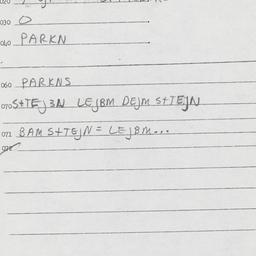 030 O
040 PARKN
060 PARKNS
070 S+TEJ 3N LEJBM DEJM S+TEJN
071 BAM S+TEJN = LEJBM...
072